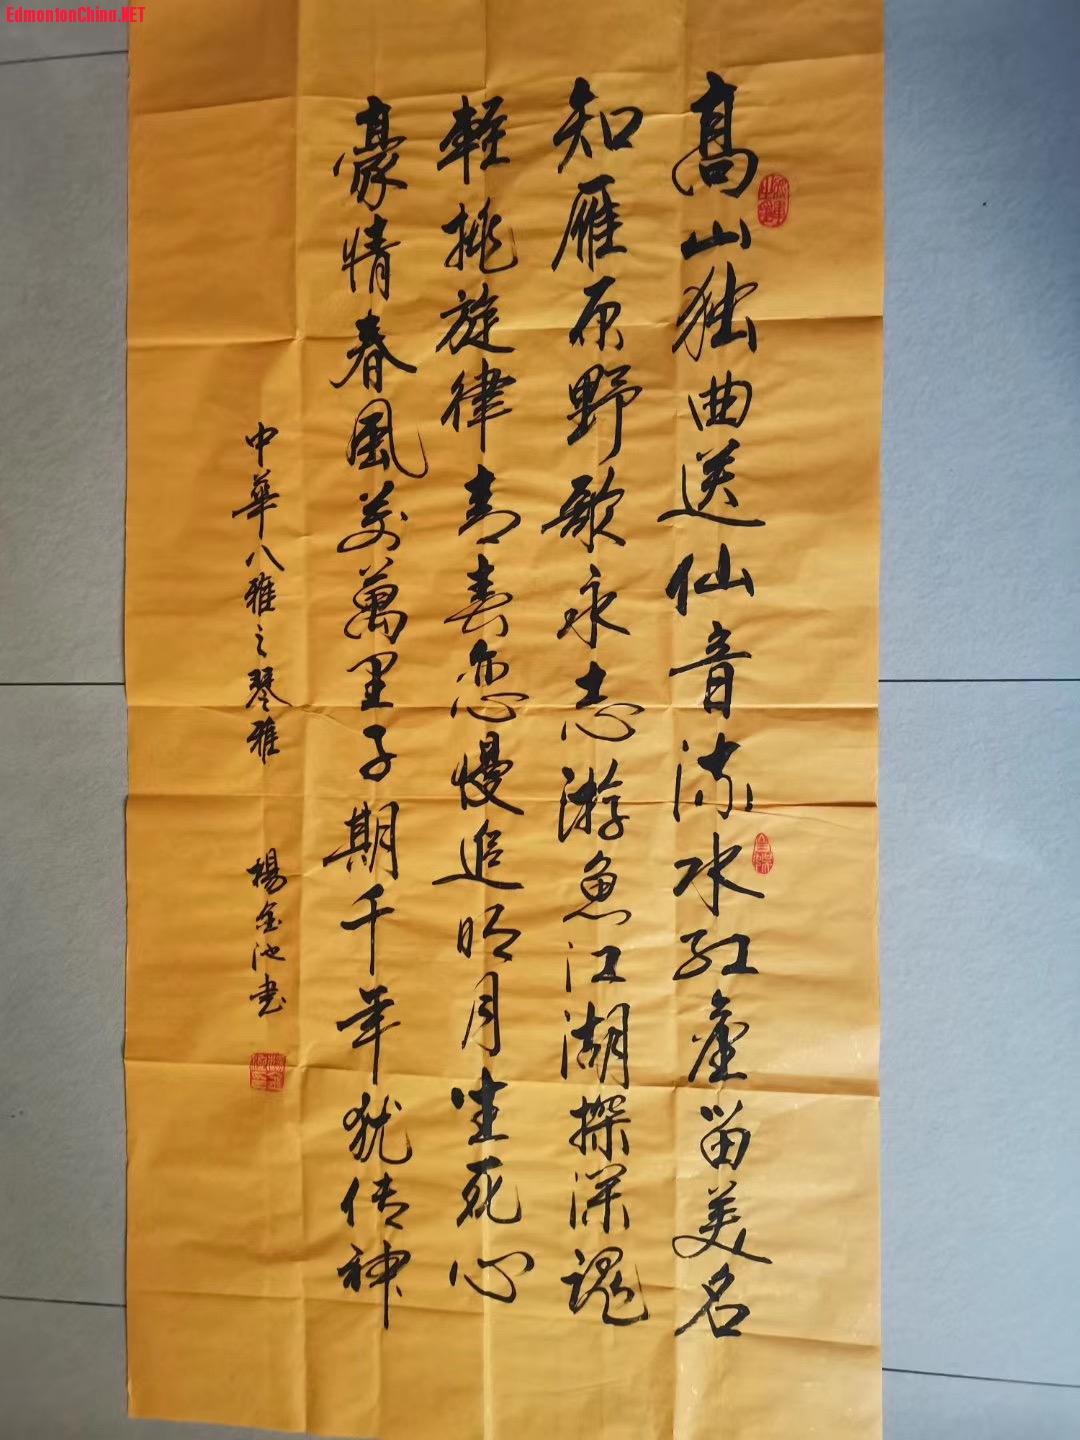 EdmontonChina.NET
高山独曲送仙音流水红尘留美名
知雁原野歌永志游鱼江湖探深魂
轻挑旋律青春恋慢追明月生死心
豪情春风万里子期千年犹传神
中華八雅之琴雅 楊金池书